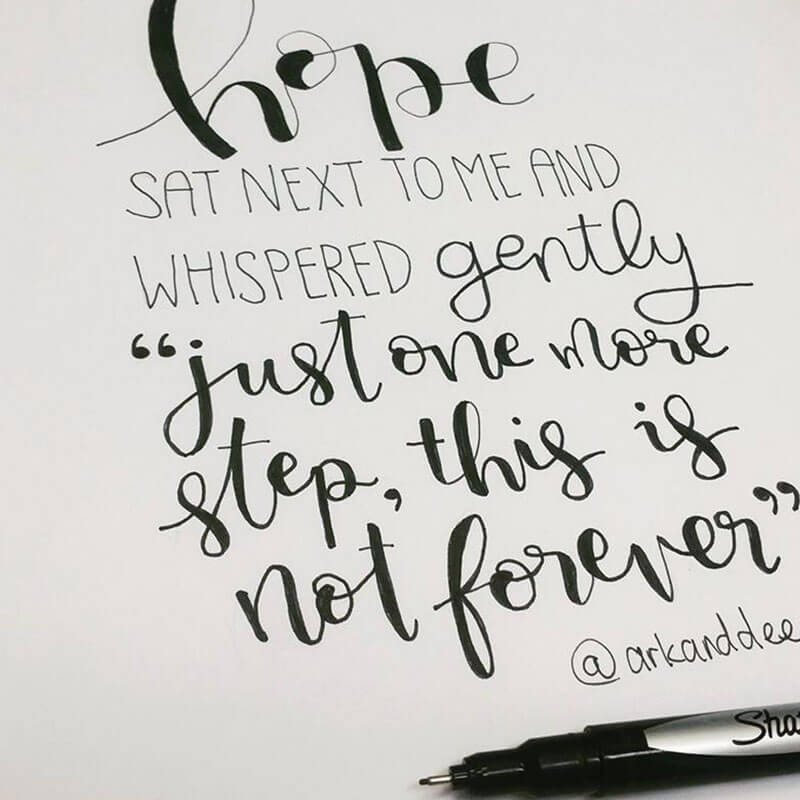 hope
SAT NEXT TO ME AND
WHISPERED gently
“just one more
step, this is
not forever”
@arkanddee